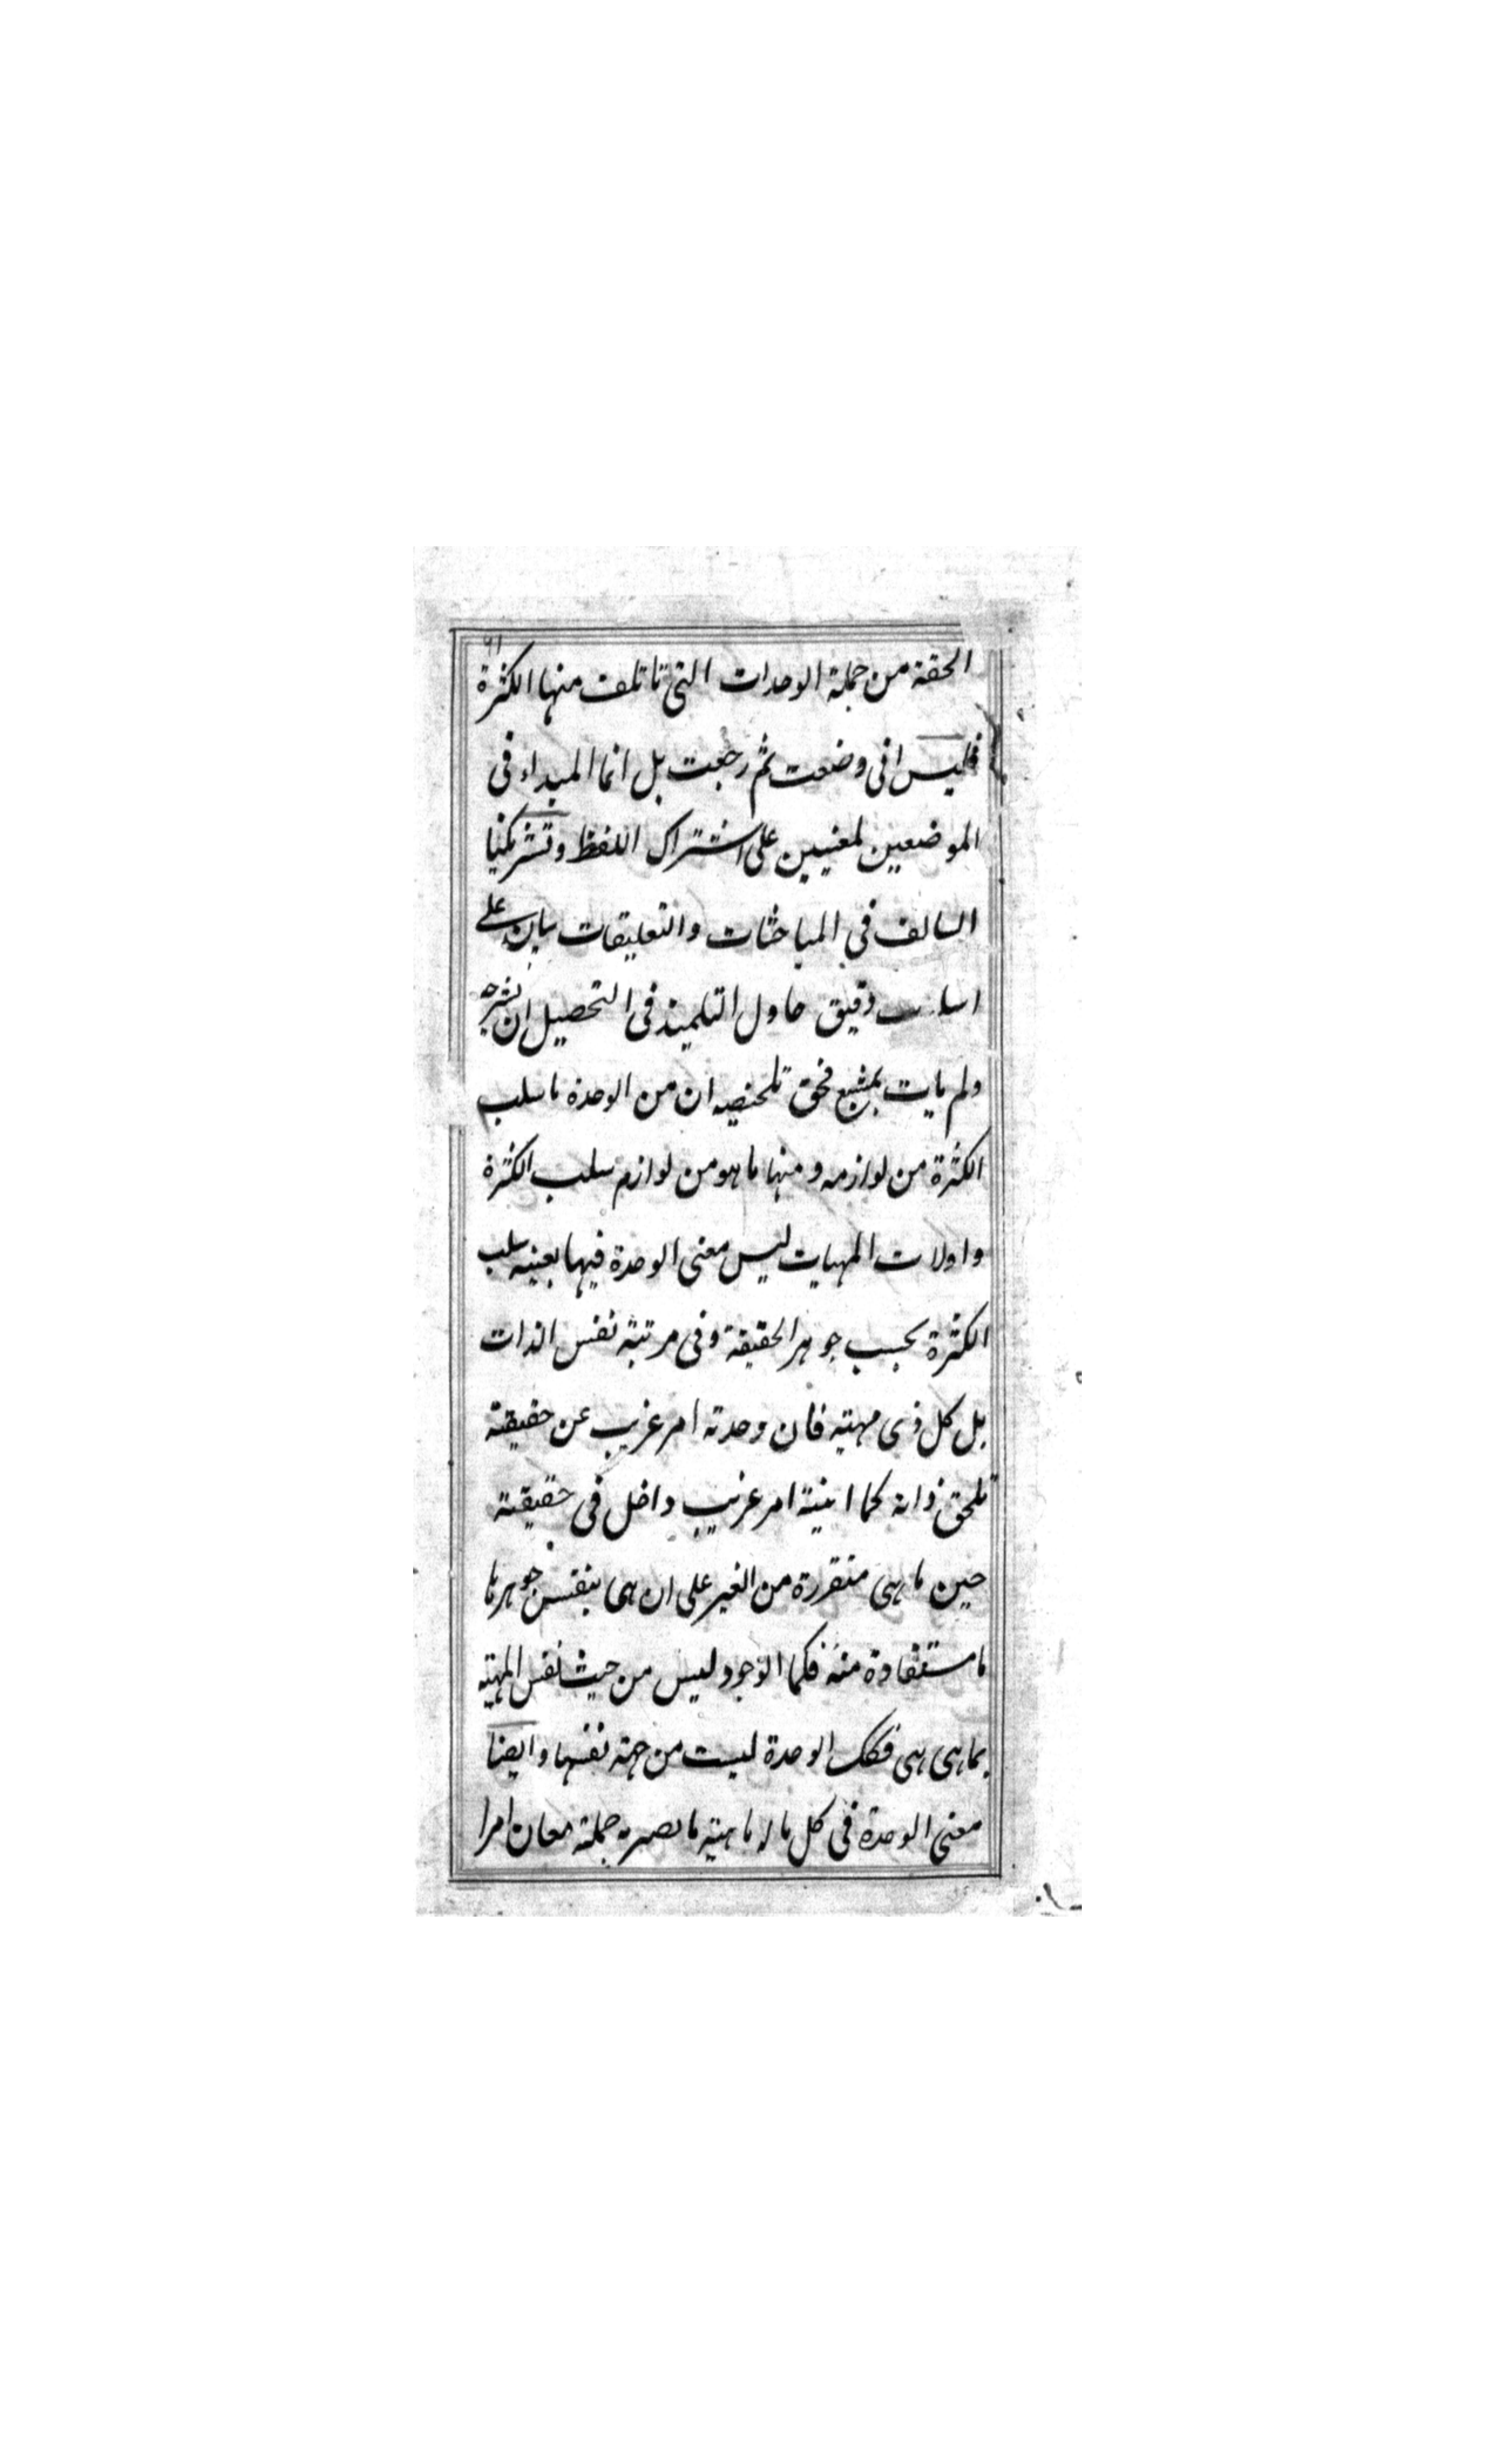 الحقة من جملة الوحدات التى تاتلف منها الكثرة
فليس افى وضعت ثم رجعت بل انما المبداء فى
الموضعين لمعنيين على اشتراك اللفظ و
السالف فى المباحثات والتعليقات بيان على
دقيق حاول التلميذ فى التحصيل ان يشرحه
ولم يات بمشبع فحق تلخيصه ان من الوحدة ما سلب
الكثرة من لوازمه ومنها ما هو من لوازم سلب الكثرة
واولات المهيات ليس معنى الوحدة فيها بعينه سلب
الكثرة بحسب جوهر الحقيقة وفى مرتبة نفس الذات
بل كل ذى مهية فان وحدته امر غريب عن حقيقة
تلحق ذاته كما انيته امر غريب داخل فى حقيقة
حين ما هى متقررة من الغير على ان هى بنفس جوهرها
ما مستفادة منه فكما الوجود ليس من حيث نفس المهية
بما هى هى فكك الوحدة ليست من جهة نفسها وايضا
معنى الوحدة فى كل ما له ماهية ما جملة معان امرا